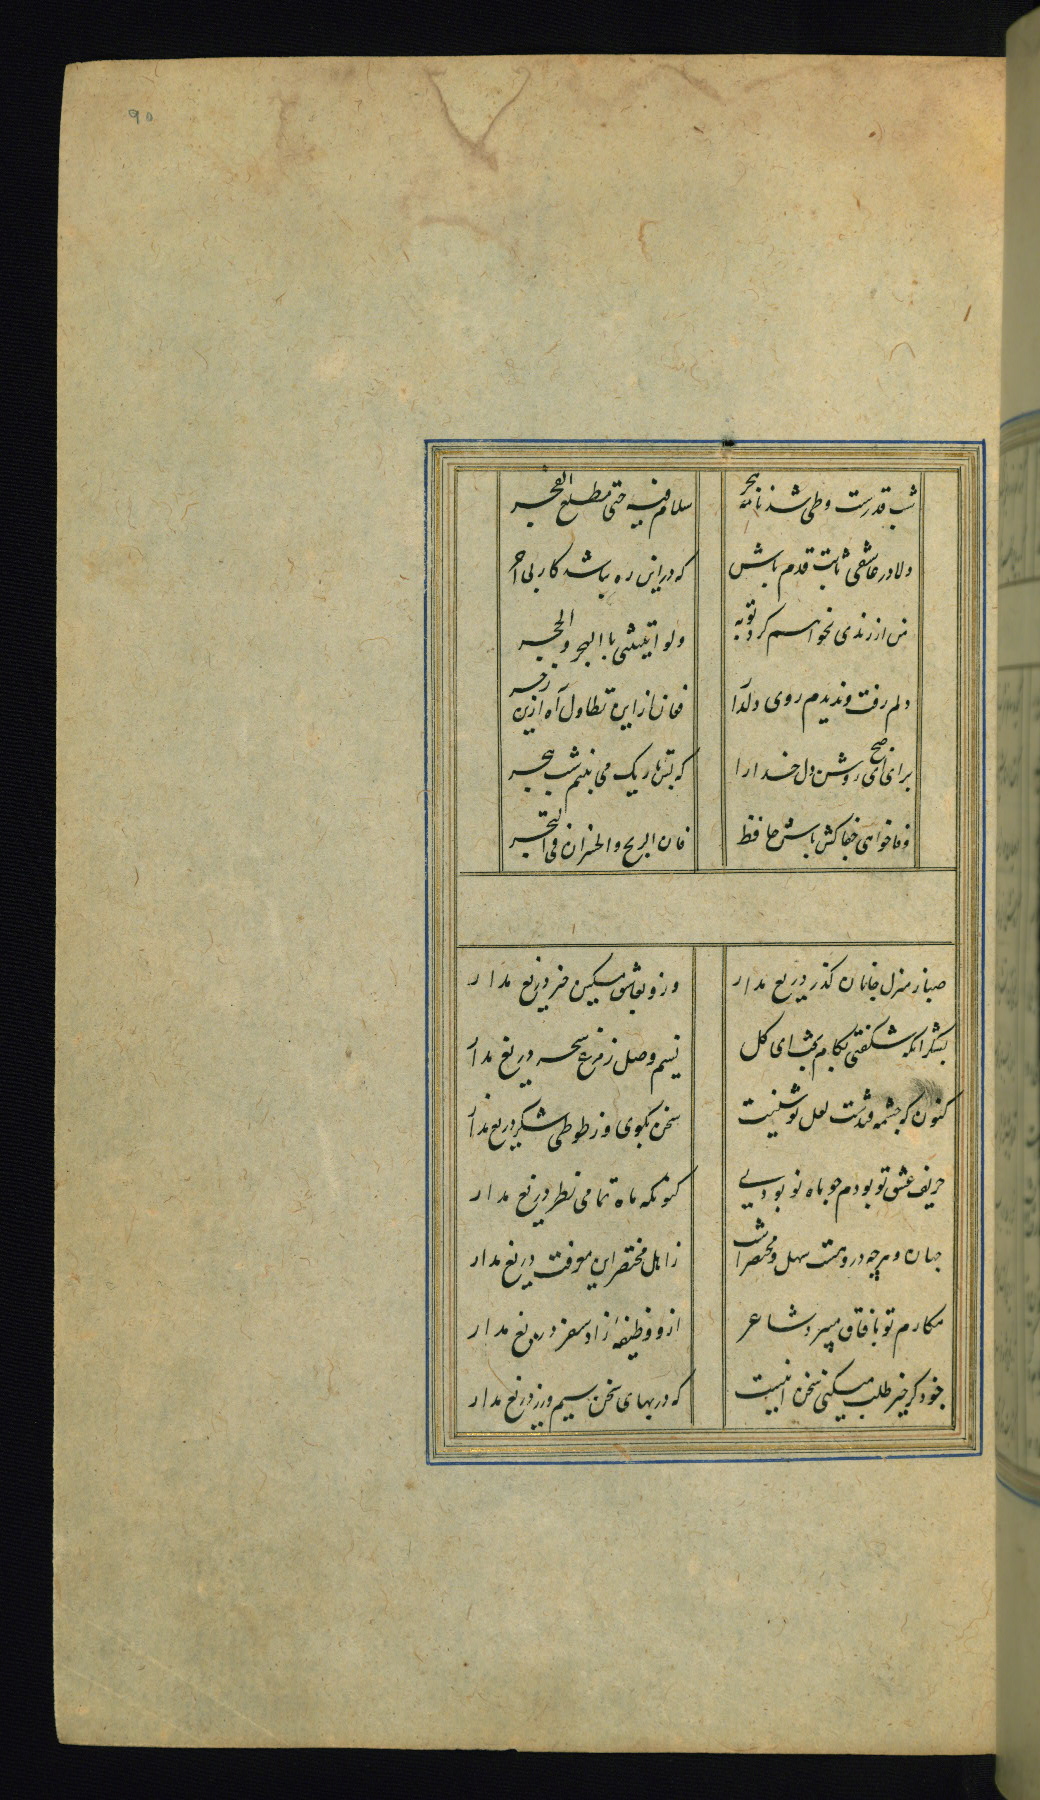 90
شب قدرست و طی شد نامه هجر
سلام فیه حتی مطلع الفجر
دلا در عاشقی ثابت قدم باش
که در این ره نباشد کار بی اجر
من از رندی نخواهم کرد توبه
ولو آتیتنی باالهجر والحجر
دلم رفت و ندیدم روی دلدار
فغان از این تطاول آه ازین زجر
برای ای صبح روشن دل خدا را
که بس تاریک می بینم شب هجر
وفا خواهی جفاکش باش حافظ
فان الربح والخسران فی التجر
صبا ز منزل جانان گذر دریغ مدار
وزو بعاشق مسکین خبر دریغ مدار
بشکر آنکه شکفتی بکام بخت ای گل
نسیم وصل ز مرغ سحر دریغ مدار
کنون که چشمه قندست لعل نوشینت
سخن بگوی و ز طوطی شکر دریغ مدار
حریف عشق تو بودم چو ماه نو بودی
کنونکه ماه تمامی نظر دریغ مدار
جهان و هرچه دروهست سهل و مختصر است
ز اهل مختصر این موفت دریغ مدار
مکارم تو بآفاق میبرد شاعر
ازو وظیفه زاد سفر دریغ مدار
چو ذکر خیر طلب میکنی سخن اینست
که در بهای سخن سیم و زر دریغ مدار